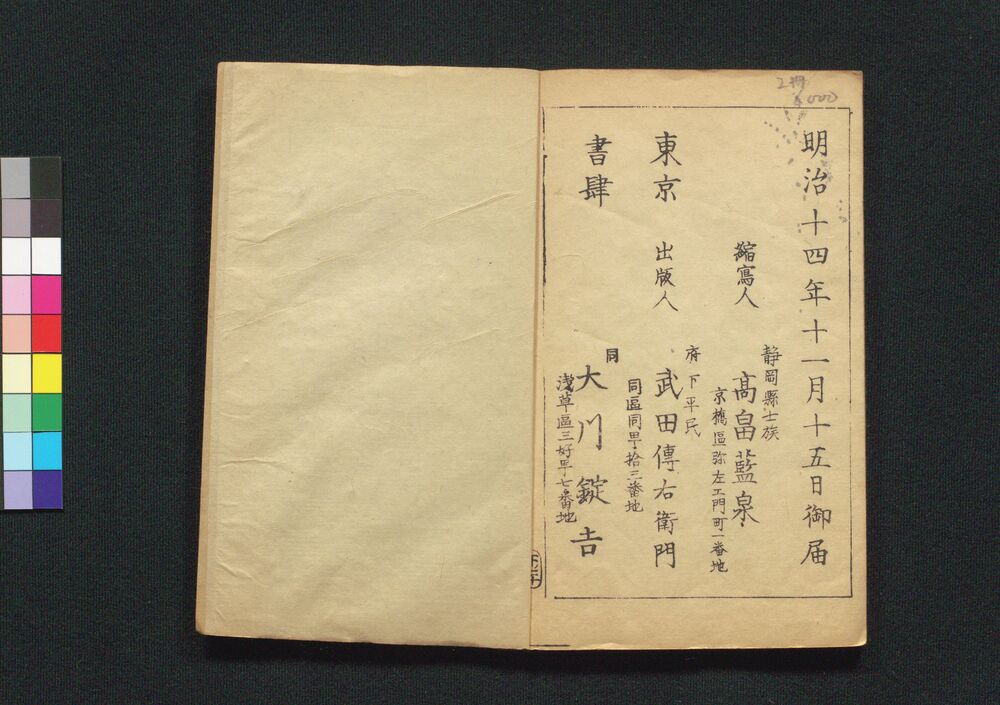 明治十四年十一月十五日御届
静岡縣士族
縮寫人 高畠藍泉
京橋區弥左エ門町一番地
府下平民
東京 出版人 武田傳右衛門
同區同町拾三番地
書肆 同 大川錠吉
浅草區三好町七番地
2冊